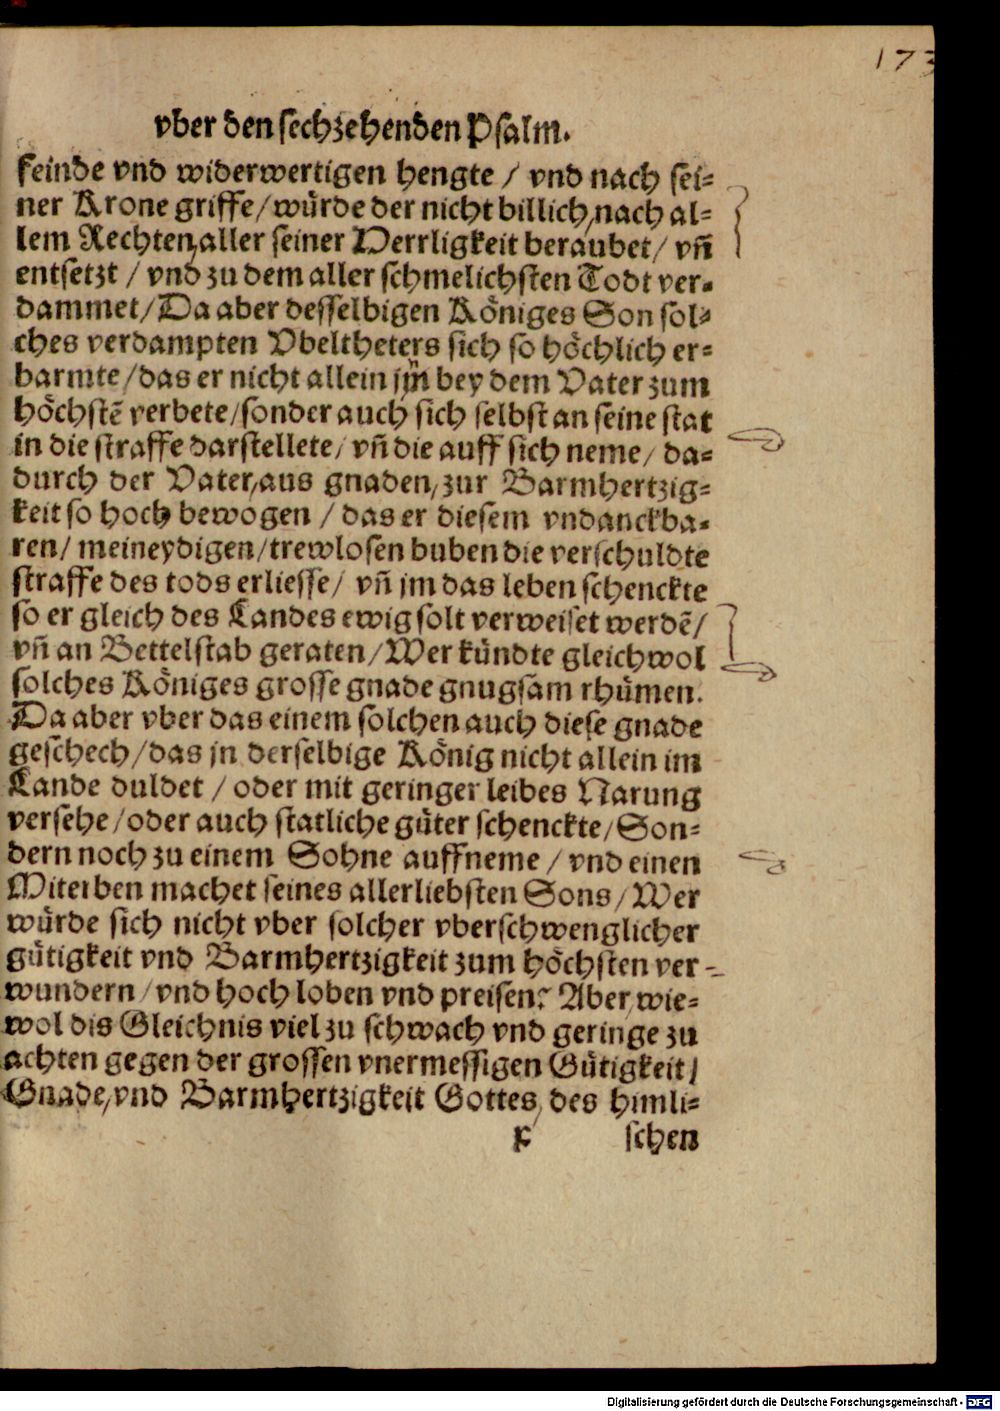 173
vber den sechzehenden Psalm.
feinde vnd widerwertigen hengte / vnd nach sei⸗
ner Krone griffe/würde der nicht billich, nach al⸗
lem Rechten, aller seiner Herrligkeit beraubet/ vñ
entsetzt / vnd zu dem aller schmelichsten Todt ver⸗
dammet/Da aber desselbigen Königes Son sol⸗
ches verdampten Vbeltheters sich so höchlich er⸗
barmte/das er nicht allein jm̃ bey dem Vater zum
höchstẽ verbete/sonder auch sich selbst an seine stat
in die straffe darstellete/ vñ die auff sich neme/ da⸗
durch der Vater, aus gnaden, zur Barmhertzig⸗
keit so hoch bewogen / das er diesem vndanckba⸗
ren/ meineydigen/trewlosen buben die verschuldte
straffe des tods erliesse/ vñ jm das leben schenckte
so er gleich des Landes ewig solt verweiset werdẽ/
vñ an Bettelstab geraten/Wer kündte gleichwol
solches Königes grosse gnade gnugsam rhümen.
Da aber vber das einem solchen auch diese gnade
geschech/das jn derselbige König nicht allein im
Lande duldet / oder mit geringer leibes Narung
versehe/oder auch statliche güter schenckte/Son⸗
dern noch zu einem Sohne auffneme / vnd einen
Miterben machet seines allerliebsten Sons/Wer
würde sich nicht vber solcher vberschwenglicher
gütigkeit vnd Barmhertzigkeit zum höchsten ver-
wundern/vnd hoch loben vnd preisen? Aber, wie⸗
wol dis Gleichnis viel zu schwach vnd geringe zu
achten gegen der grossen vnermessigen Gütigkeit/
Gnade, vnd Barmhertzigkeit Gottes, des himli⸗
schen
Digitalisierung gefördert durch die Deutsche Forschungsgemeinschaft - DFG